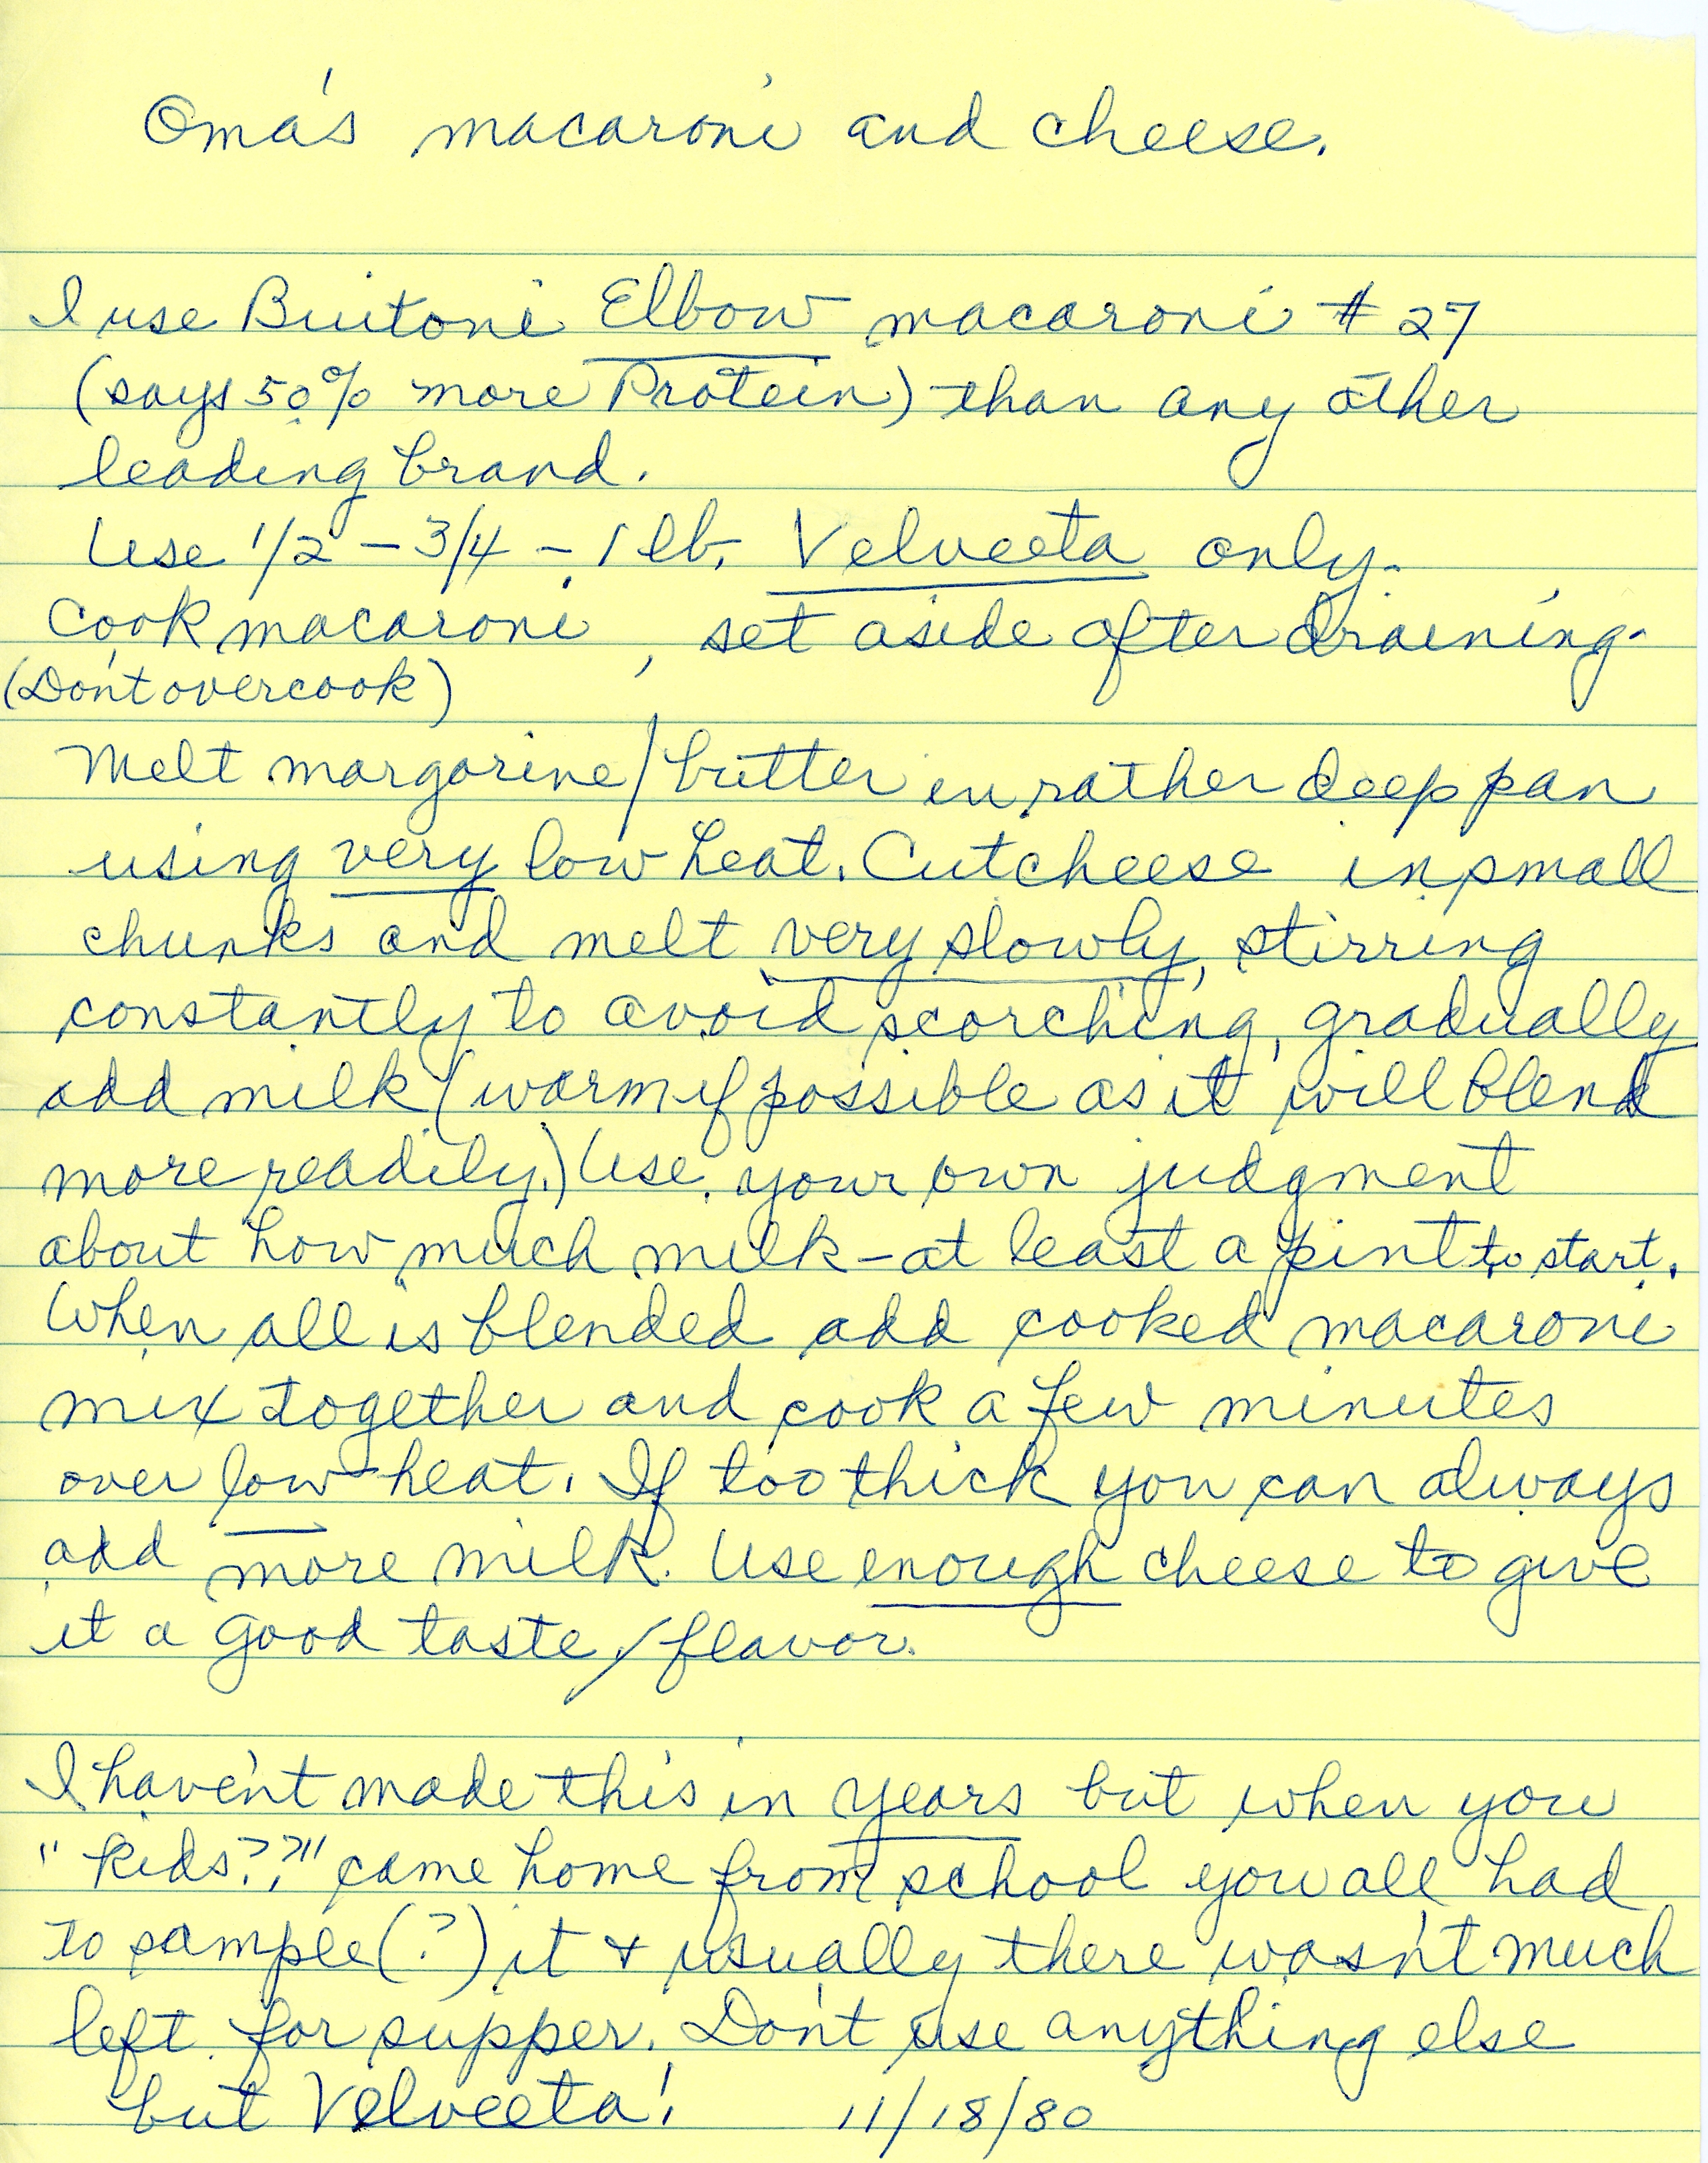 Oma's macaroni and cheese.
I use Buitoni Elbow macaroni # 27
(says 50% more Protein) than any other
leading brand.
Use 1/2 - 3/4 - 1 lb. Velveeta only.
Cook macaroni, set aside after draining.
(Don't overcook)
Melt margarine/butter in rather deep pan
using very low heat. Cut cheese in small
chunks and melt very slowly, stirring
constantly to avoid scorching, gradually
add milk (warm if possible as it will blend
more readily.) Use your own judgment
about how much milk - at least a pint to start.
When all is blended add cooked macaroni
mix together and cook a few minutes
over low heat. If too thick you can always
add more milk. Use enough cheese to give
it a good taste/flavor.
I haven't made this in years but when you
"kids??" came home from school you all had
to sample(?) it & usually there wasn't much
left for supper. Don't use anything else
but Velveeta! 11/18/80